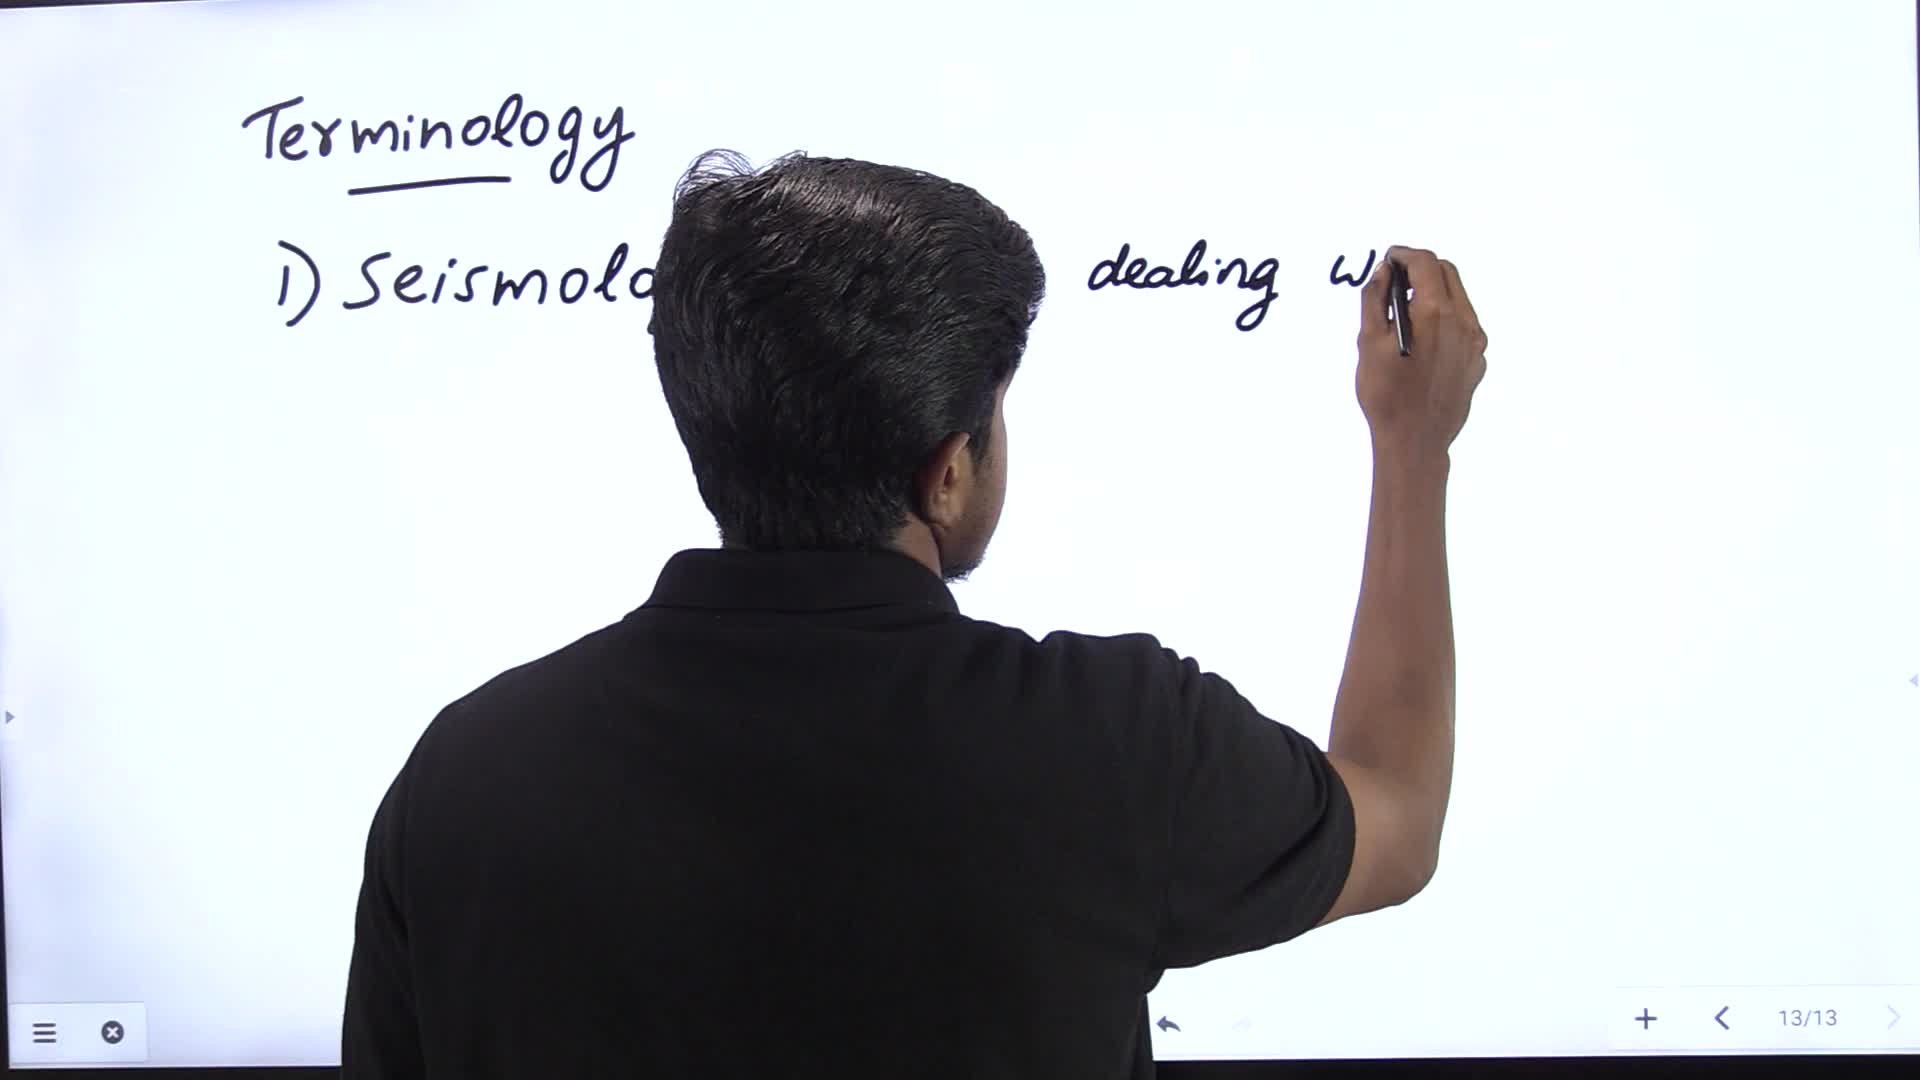 Terminology
1) Seismolo dealing w
13/13